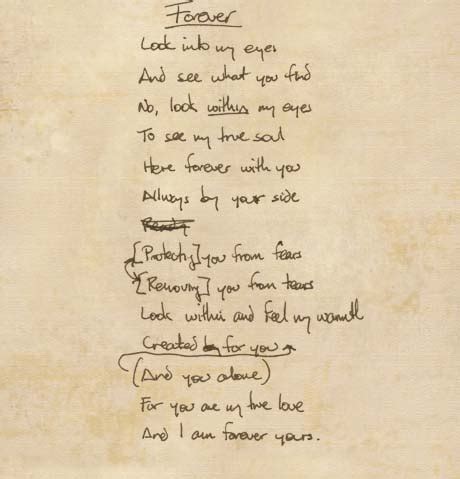 Forever
Look into my eyes
And see what you find
No, look within my eyes
To see my true soul
Here forever with you
Allways by your side
Ready
[Protecting] you from fears
[Removing] you from tears
Look within and feel my warmth
Created by for you
(And you alone)
For you are my true love
And I am forever yours.